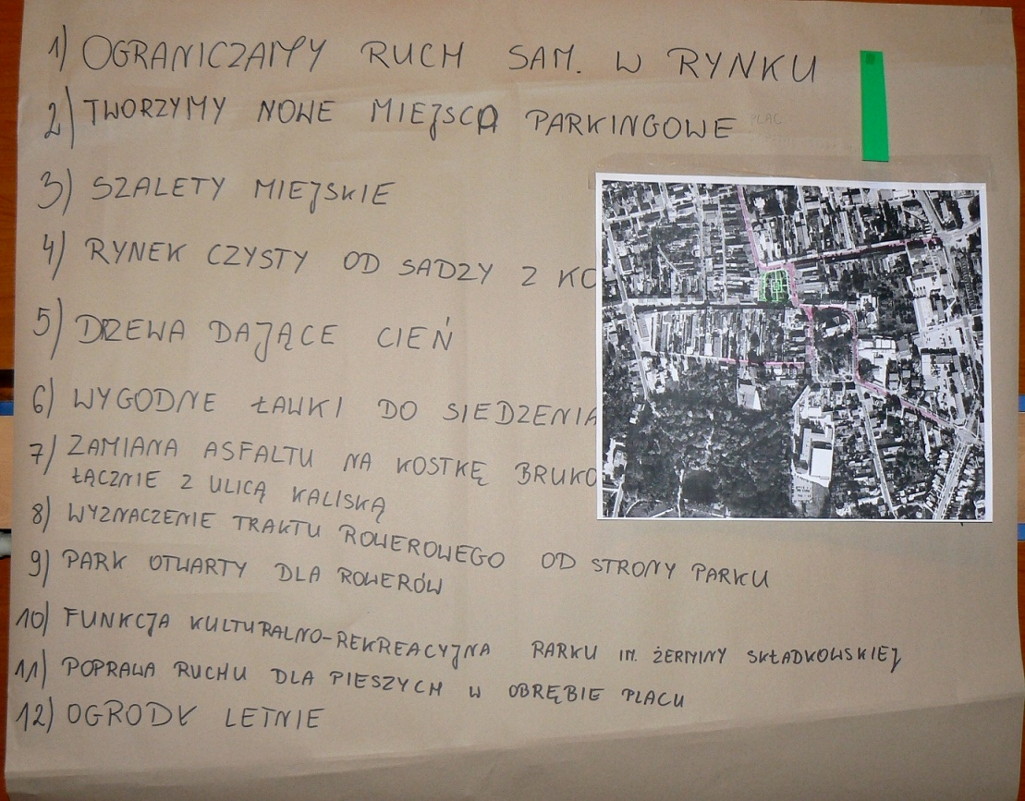 1) OGRANICZAMY RUCH SAM. W RYNKU
2) TWORZYMY NOWE MIEJSCA PARKINGOWE
3) SZALETY MIEJSKIE
4) RYNEK CZYSTY OD SADZY Z KO
5) DRZEWA DAJĄCE CIEŃ
6) WYGODNE ŁAWKI DO SIEDZENIA
7) ZAMIANA ASFALTU NA KOSTKĘ BRUKO
ŁĄCZNIE Z ULICĄ KALISKĄ
8) WYZNACZENIE TRAKTU ROWEROWEGO OD STRONY PARKU
9) PARK OTWARTY DLA ROWERÓW
10) FUNKCJA KULTURALNO-REKREACYJNA PARKU IM. ŻERMINY SKŁADKOWSKIEJ
11) POPRAWA RUCHU DLA PIESZYCH W OBRĘBIE PLACU
12) OGRODY LETNIE